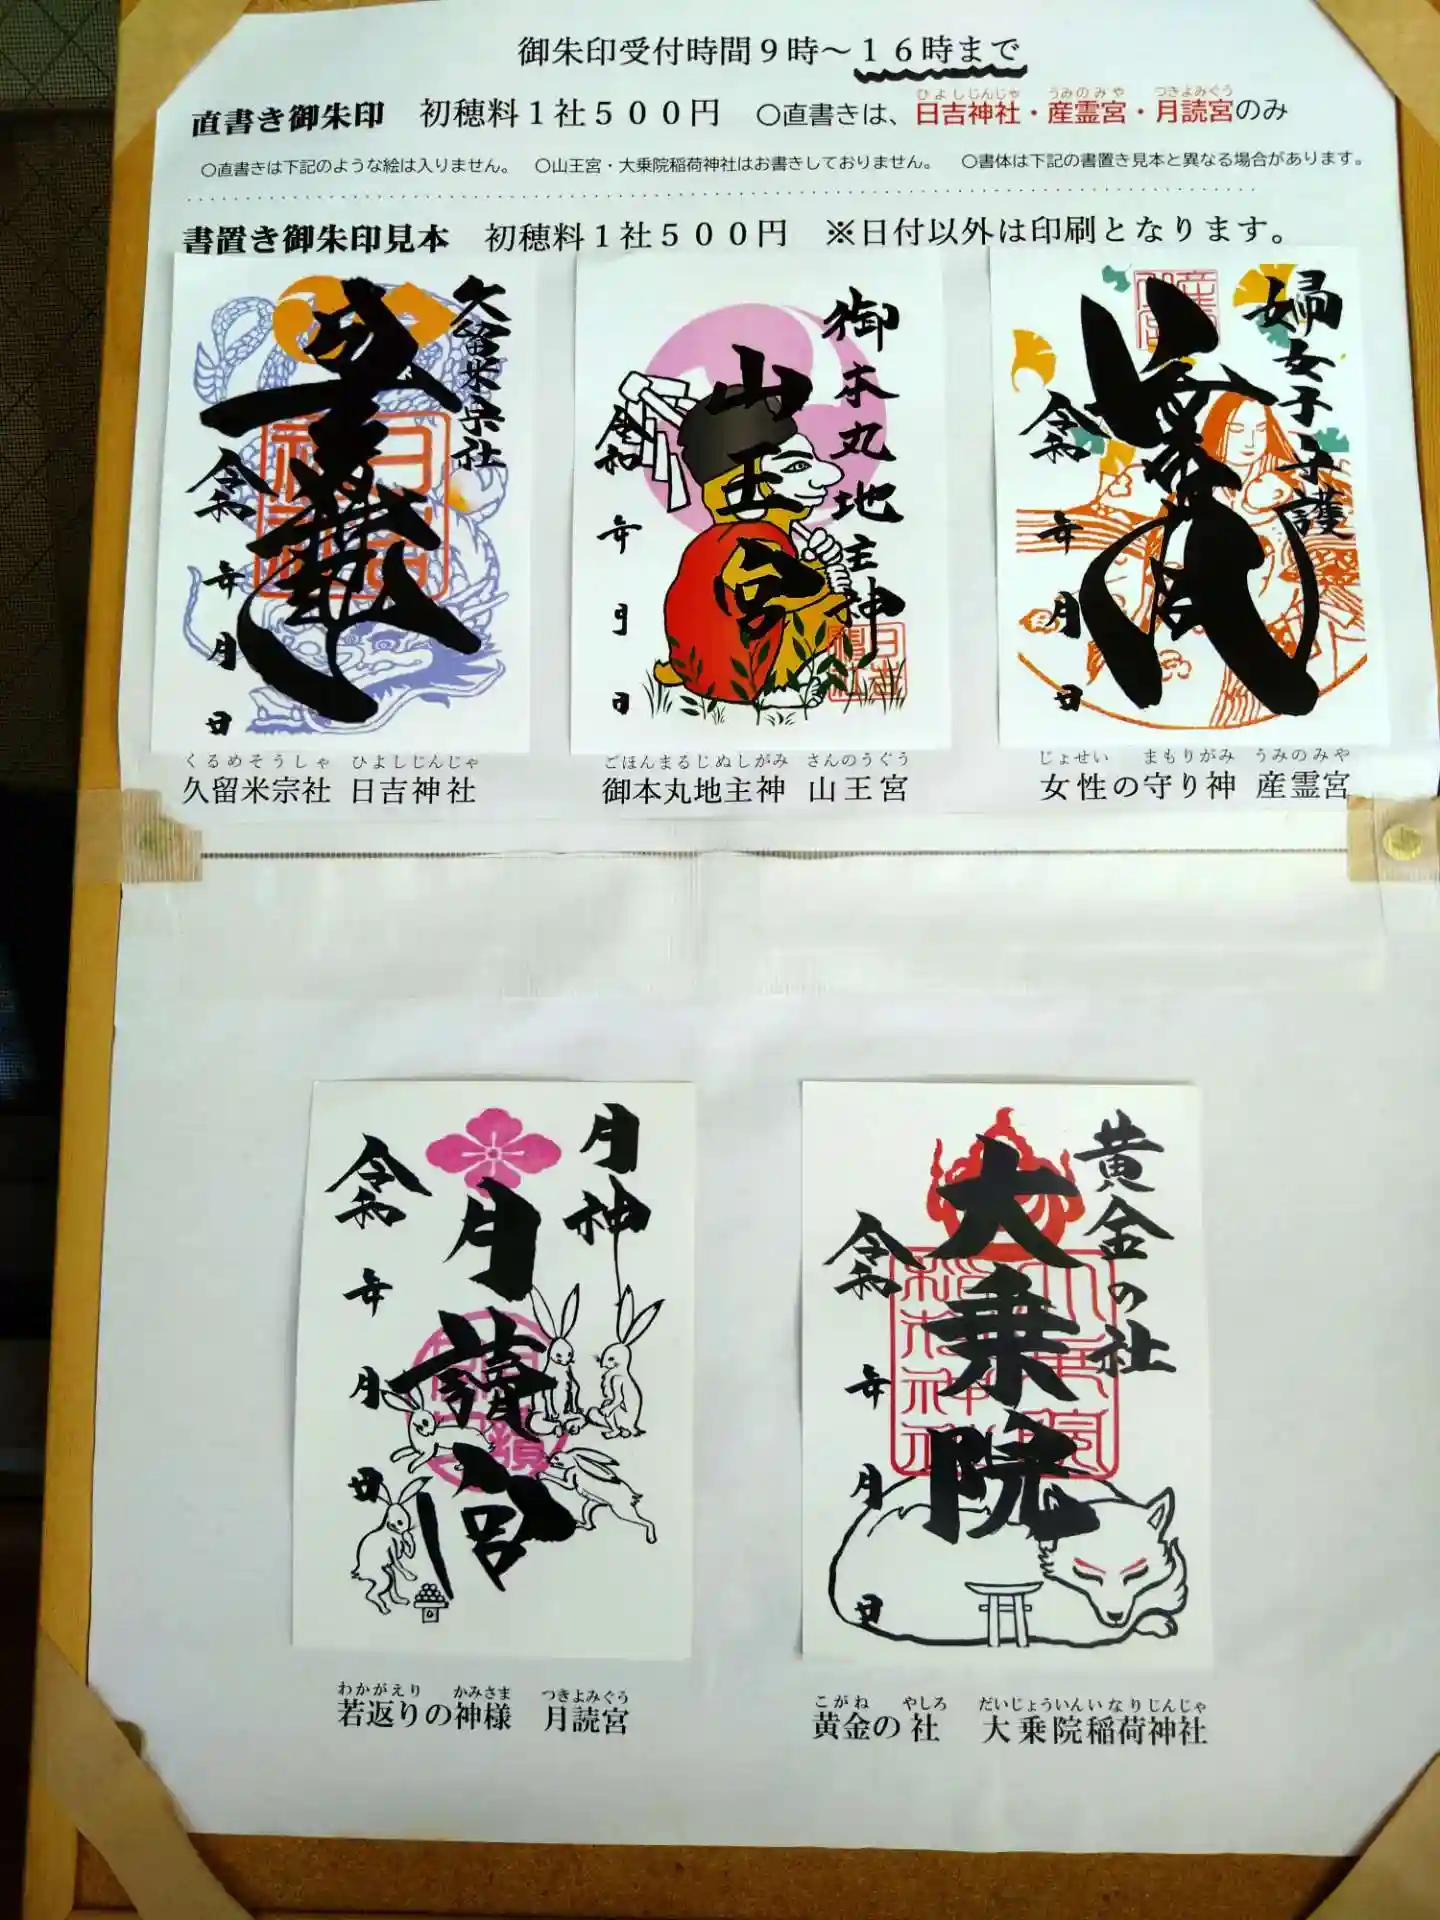 御朱印受付時間９時～１６時まで
直書き御朱印　初穂料１社５００円　○直書きは、日吉神社・産霊宮・月読宮のみ
ひよしじんじゃ　うみのみや　つきよみぐう
○直書きは下記のような絵は入りません。　○山王宮・大乗院稲荷神社はお書きしておりません。　○書体は下記の書置き見本と異なる場合があります。
書置き御朱印見本　初穂料１社５００円　※日付以外は印刷となります。
久留米宗社
令和　年　月　日
御本丸地主神
山王宮
令和　年　月　日
婦女子守護
令和　年　月　日
くるめそうしゃ　ひよしじんじゃ
久留米宗社　日吉神社
ごほんまるじぬしがみ　さんのうぐう
御本丸地主神　山王宮
じょせい　まもりがみ　うみのみや
女性の守り神　産霊宮
月神
月読宮
令和　年　月　日
黄金の社
大乗院
令和　年　月　日
わかがえり　かみさま　つきよみぐう
若返りの神様　月読宮
こがね　やしろ　だいじょういんいなりじんじゃ
黄金の社　大乗院稲荷神社